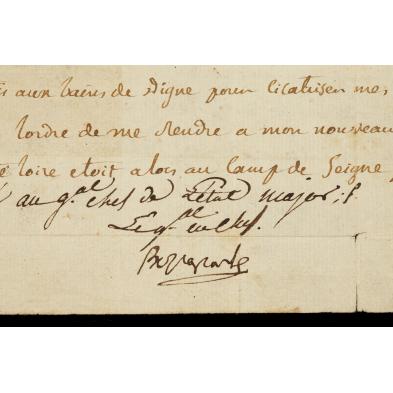 aux bains de Digne pour Cicatriser me,
lordre de me Rendre a mon nouveau
loire etoit alors au Camp de Soigne
au g.al chef de L'etat major; f.
Le g.al en chef.
Bonaparte